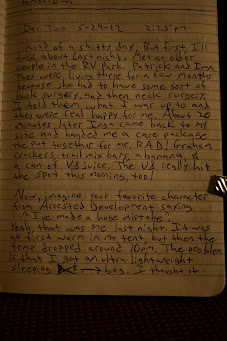 Day Two 5-29-12 2:25pm
Kind of a shitty day. But first, I'll
talk about last night. Met an older
couple in the RV park, Patrick and Inga.
They were living there for a few months
because she had to have some sort of
back surgery, and then neck surgery.
I told them what I was up to and
they were real happy for me. About 20
minutes later Inga came back to my
site and handed me a care package
she put together for me. RAD! Graham
crackers, trail mix bars, a banana, &
a can of V8 juice. The V8 really hit
the spot this morning, too!
Now, imagine your favorite character
from Arrested Development saying,
"I've made a huge mistake".
Yeah, that was me last night. It was
at first warm in my tent, but then the
temp dropped around 10pm. The problem
is that I got an ultra lightweight
sleeping → bag. I thought it